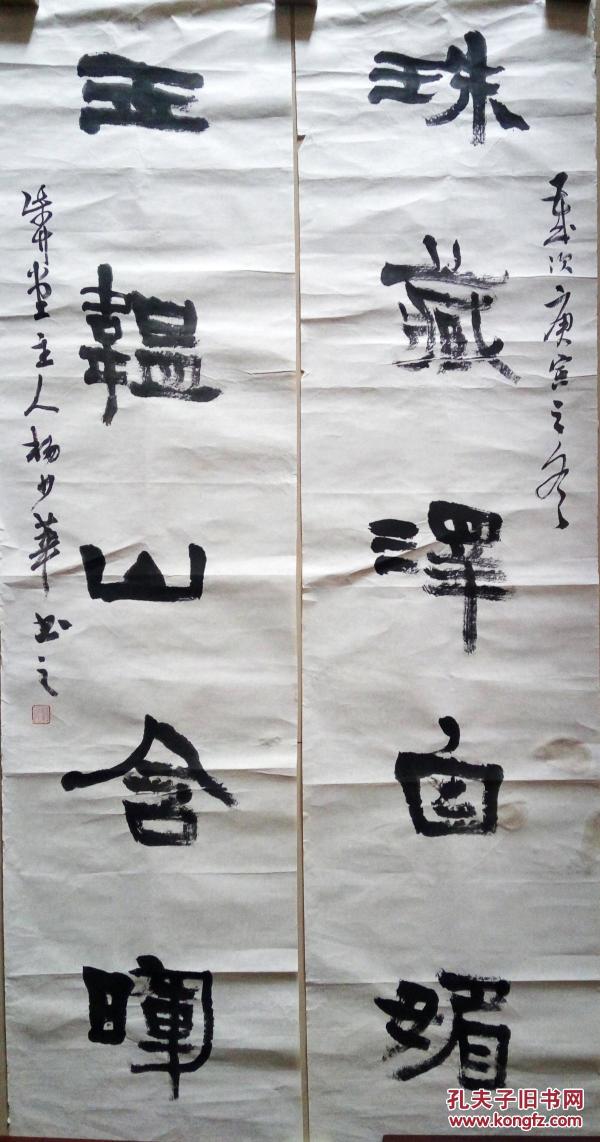 歲次庚寅之冬
珠藏澤自媚
玉韞山含暉
堂主人杨少華书之
孔夫子旧书网
www.kongfz.com